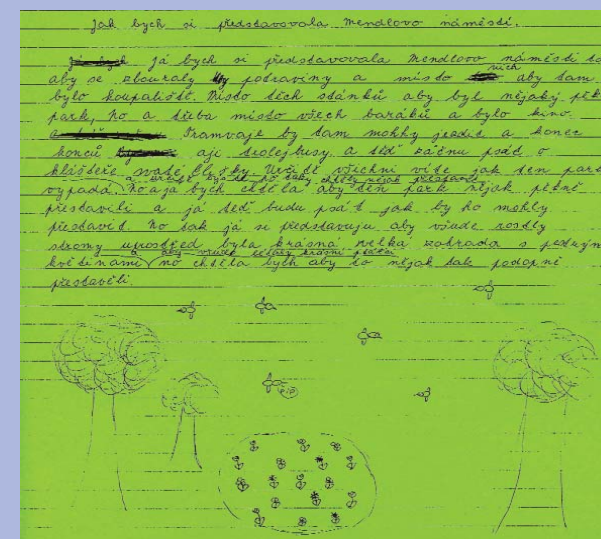 Jak bych si představovala Mendlovo náměstí.
Já bych si představovala Mendlovo náměstí ta
aby se zbouraly potraviny a místo nich aby tam
bylo koupaliště. Místo těch stánků aby byl nějaký pěk
park, no a třeba místo všech baráků a bylo kino.
Tramvaje by tam mohly jezdit a konec
konců aji trolejbusy, a teď začnu psát o
klášteře. všichni víte jak ten park
vypadá. No a já bych chtěla aby ten park nějak pěkně
přestavěli a já teď budu psát jak by ho mohly
přestavit. No tak já si představuju aby všude rostly
stromy uprostřed byla krásná velká zahrada s pestrým
a aby všude létaly krásní ptáčci
květinami no chtěla bych aby to nějak tak podopně
přestavěli.